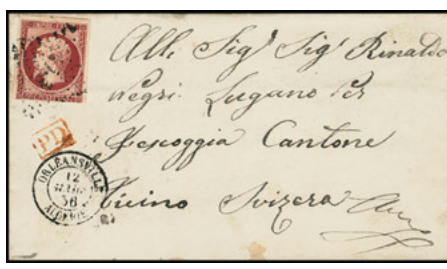 All. Sigr Sigr Rinaldo
Negri Lugano per
Pescoggia Cantone
Ticino Svizera
PD
ORLÉANSVILLE
12
MARS
56
ALGÉRIE